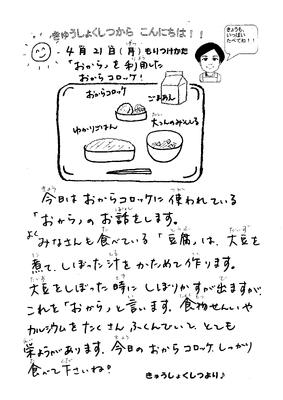 きゅうしょくしつから こんにちは！！
きょうも、
いっぱい
たべてね！！
4月21日(月)もりつけかた
「おから」を利用した
おからコロッケ！
おからコロッケ
ごまあん
ゆかりごはん
大こんのみそしる
今日はおからコロッケに使われている
「おから」のお話をします。
よくみなさんも食べている「豆腐」は、大豆を
煮て、しぼった汁をかためて作ります。
大豆をしぼった時にしぼりかすが出ますが、
これを「おから」と言います。食物せんいや
カルシウムをたくさんふくんでいて、とても
栄ようがあります。今日のおからコロッケしっかり
食べて下さいね。
きゅうしょくしつより♪